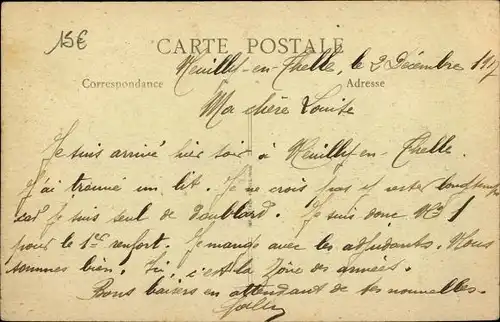 15€
CARTE POSTALE
Neuilly-en-Thelle, le 2 Décembre 1917
Correspondance
Adresse
Ma chère Louise
Je suis arrivé hier soir à Neuilly en-Thelle.
J'ai trouvé un lit. Je ne crois pas y rester longtemps
car je suis seul de Je suis donc No 1
pour le 1er renfort. Je mange avec les adjudants. Nous
sommes bien. Ici, c'est la Zône des armées.
Bons baisers en attendant de tes nouvelles.